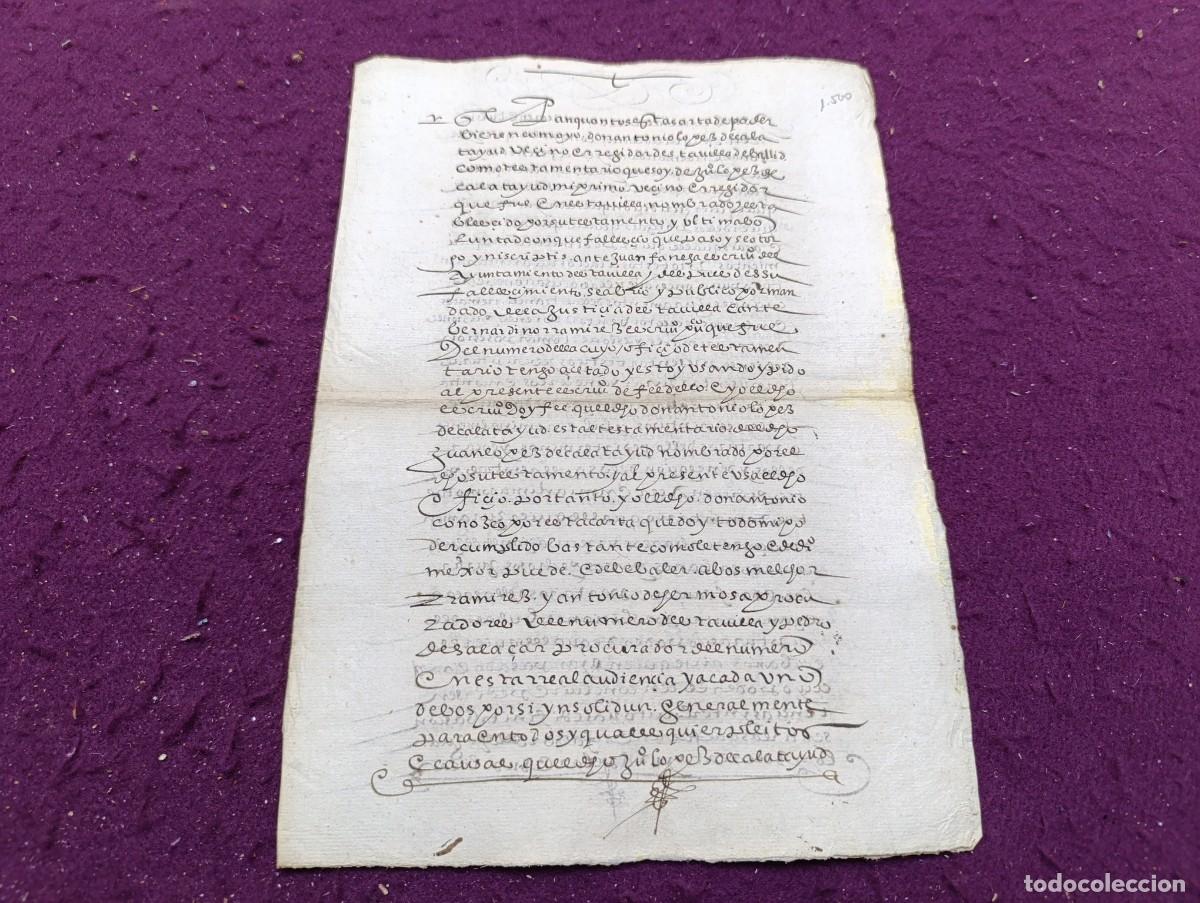 1.500
Sepan quantos esta carta de poder
bieren como yo don antonio lopez de cala
tayud vezino e rregidor desta villa de ballid
como testamentario que soy de juº lopez de
calatayud mi primo vezino e rregidor
que fue en esta villa nombrado y esta
blecido por su testamento y ultima bo
luntad con que fallecio que paso y se otor
go yn iscriptis ante juan fanega escriuº del
ayuntamiento desta villa y despues de su
fallecimiento se abrio y publico por man
dado de la justicia desta villa e ante
bernardino rramirez escriuº puco que fue
del numero della cuyo oficio de testamen
tario tengo acetado y estoy usando y pido
al presente escriuº de fee dello e yo el dho
escriuº doy fee quel dho don antonio lopez
de calatayud esta testamentario del dho
juan lopez de calatayud nombrado por el
dho su testamento y al presente usa el dho
oficio. por tanto yo el dho don antonio
conozco por esta carta que doy todo mi po
der cumplido bastante como le tengo e de drº
mexor puede e debe baler a bos melchor
rramirez y antonio de hermosa procu
radores del numero desta villa y pedro
de salaçar procurador del numero
en esta rreal audiençia y a cada uno
de bos por si yn solidun. generalmente
para en todos y qualesquier pleitos
e causas quel dho juº lopez de calatayud
todocoleccion